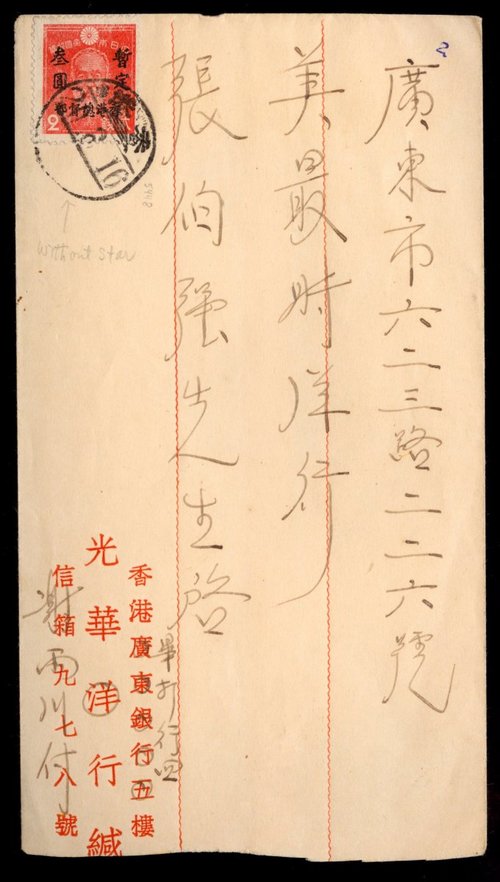 廣東市六二三路二二六號
美最時洋行
張伯强先生啓
香港廣東銀行五樓
畢打行四
光華洋行緘
信箱九七八號
謝雨川付
2
暫定
叁圓
2
16
5448
without star